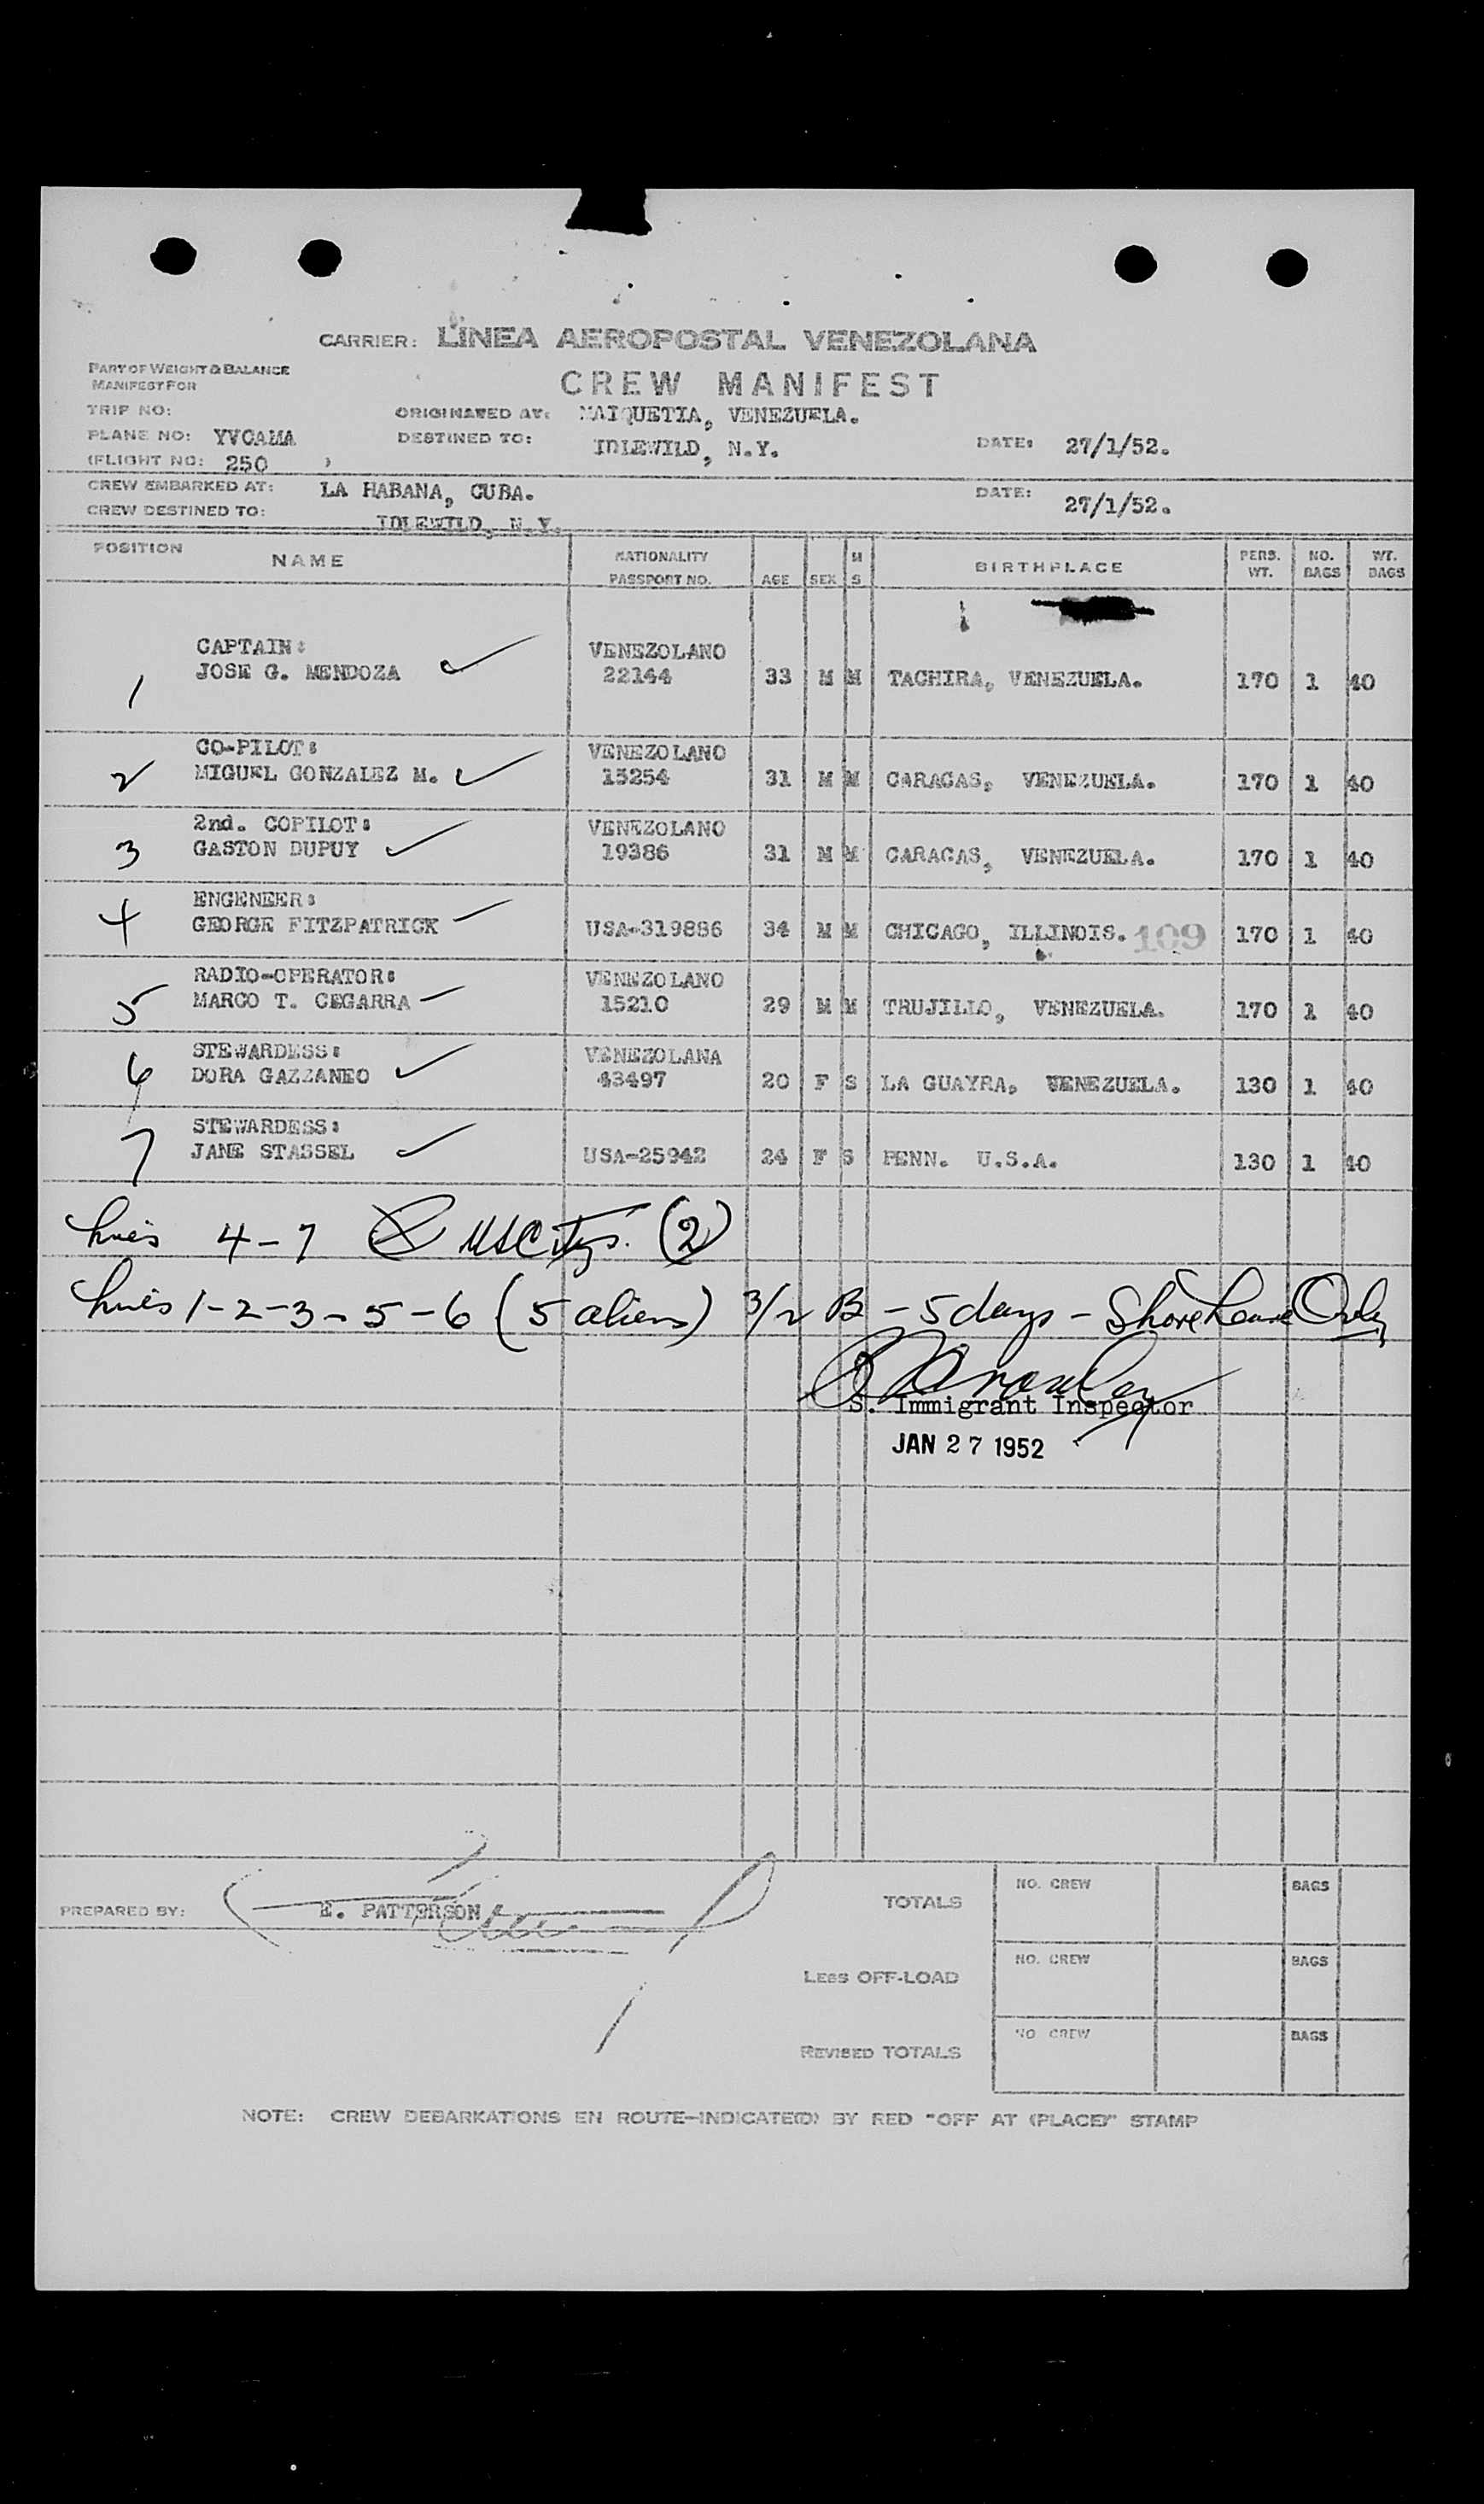 CARRIER: LINEA AEROPOSTAL VENEZOLANA
PART OF WEIGHT & BALANCE
MANIFEST FOR
CREW MANIFEST
TRIP NO:
ORIGINATED AT: MAIQUETIA, VENEZUELA.
PLANE NO: YVCAMA
DESTINED TO: IDLEWILD, N.Y.
DATE: 27/1/52.
(FLIGHT NO: 250 )
CREW EMBARKED AT: LA HABANA, CUBA.
DATE: 27/1/52.
CREW DESTINED TO: IDLEWILD, N.Y.
POSITION NAME NATIONALITY PASSPORT NO. AGE SEX M S BIRTHPLACE PERS. WT. NO. BAGS WT. BAGS
CAPTAIN: VENEZOLANO
1 JOSE G. MENDOZA 22144 33 M M TACHIRA, VENEZUELA. 170 1 40
CO-PILOT: VENEZOLANO
2 MIGUEL GONZALEZ M. 15254 31 M M CARACAS, VENEZUELA. 170 1 40
2nd. COPILOT: VENEZOLANO
3 GASTON DUPUY 19386 31 M M CARACAS, VENEZUELA. 170 1 40
ENGENEER:
4 GEORGE FITZPATRICK USA-319886 34 M M CHICAGO, ILLINOIS. 109 170 1 40
RADIO-OPERATOR: VENEZOLANO
5 MARCO T. CEGARRA 15210 29 M M TRUJILLO, VENEZUELA. 170 1 40
STEWARDESS: VENEZOLANA
6 DORA GAZZANEO 43497 20 F S LA GUAYRA, VENEZUELA. 130 1 40
STEWARDESS:
7 JANE STASSEL USA-25942 24 F S PENN. U.S.A. 130 1 40
lines 4-7 (2)
lines 1-2-3-5-6 (5 aliens) 3/2 B - 5 days - Shore Leave Only
S. Immigrant Inspector
JAN 27 1952
PREPARED BY: E. PATTERSON
TOTALS NO. CREW BAGS
LESS OFF-LOAD NO. CREW BAGS
REVISED TOTALS NO CREW BAGS
NOTE: CREW DEBARKATIONS EN ROUTE-INDICATE(D) BY RED "OFF AT (PLACE)" STAMP